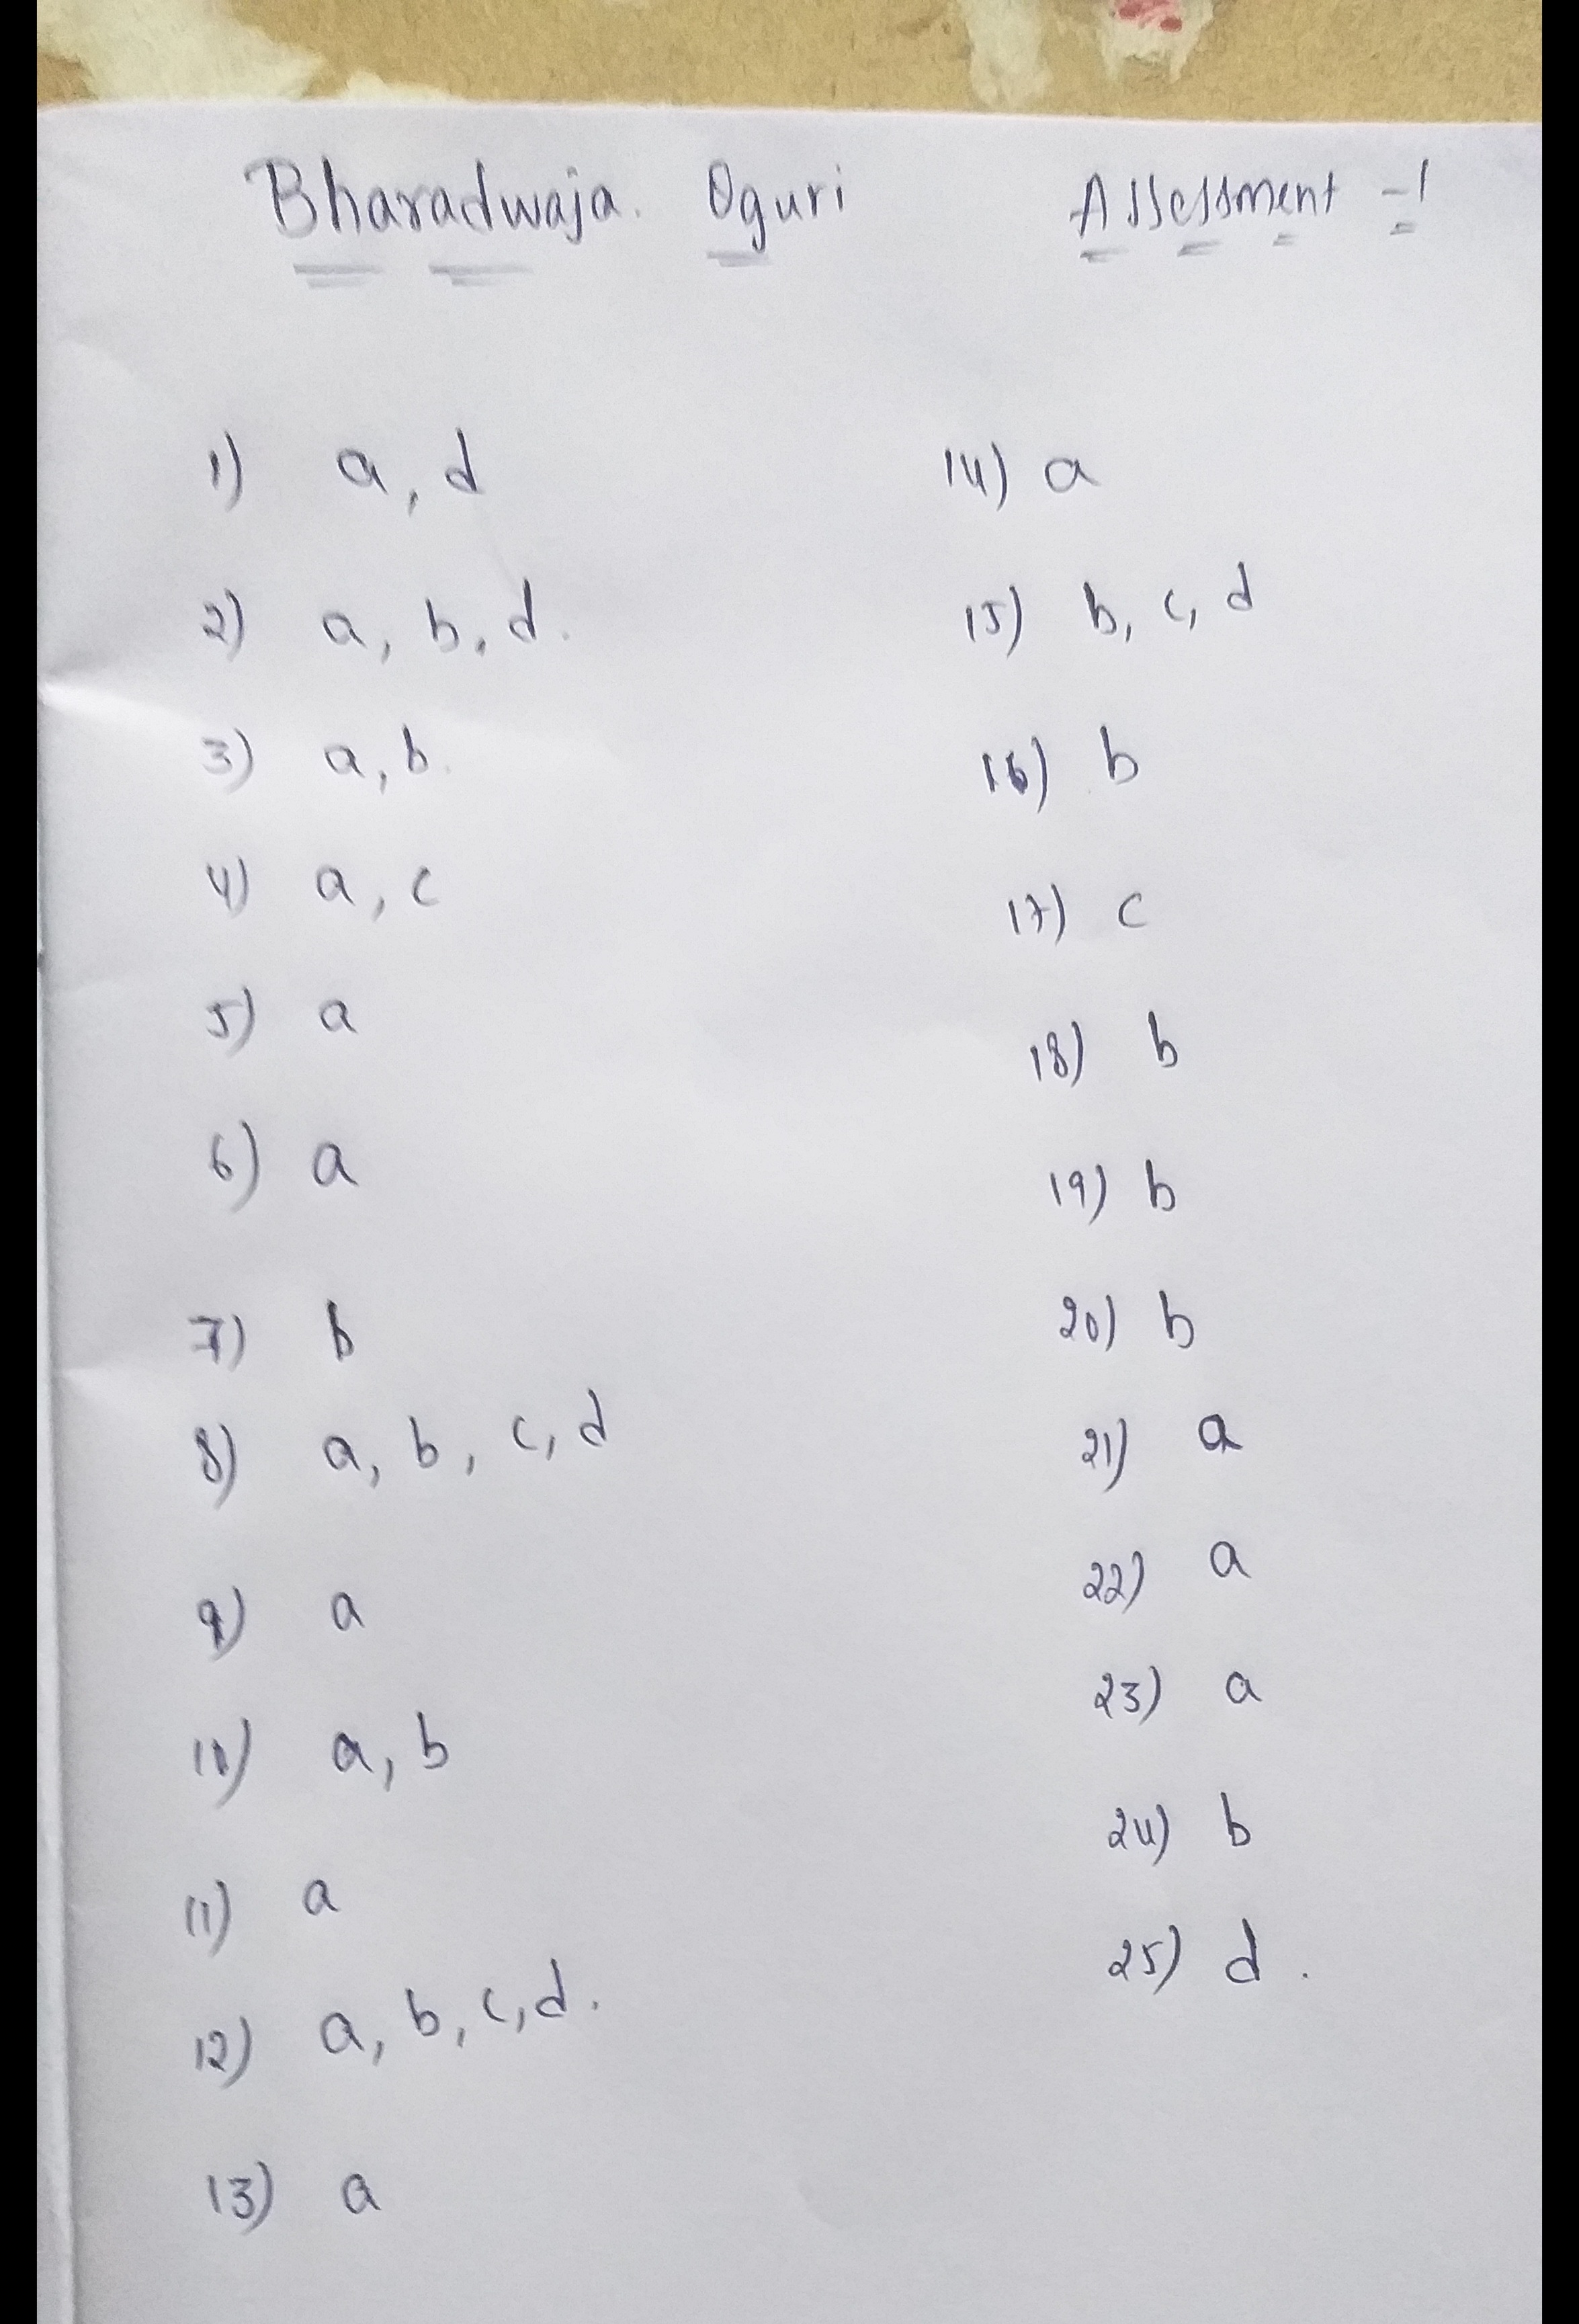 Bharadwaja. Oguri
Assessment -1
1) a, d
2) a, b, d.
3) a, b.
4) a, c
5) a
6) a
7) b
8) a, b, c, d
9) a
10) a, b
11) a
12) a, b, c, d.
13) a
14) a
15) b, c, d
16) b
17) c
18) b
19) b
20) b
21) a
22) a
23) a
24) b
25) d.